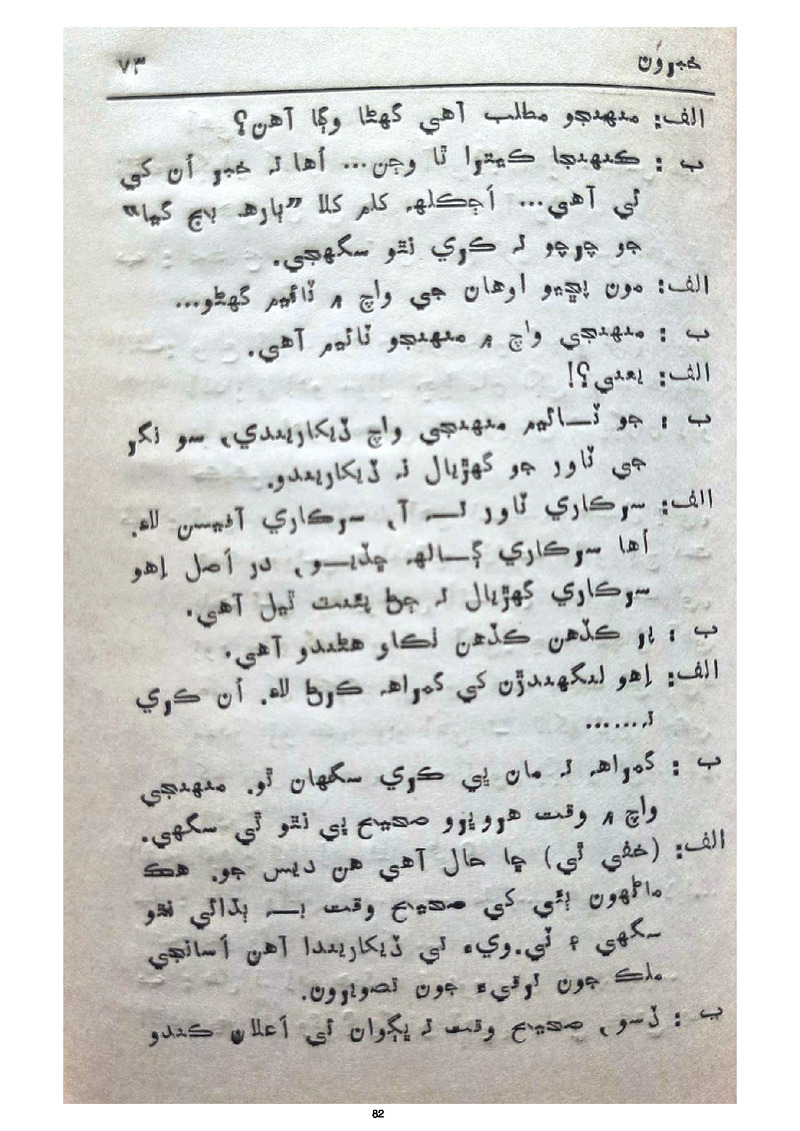 خبرون ٧٣
الف: منهنجو مطلب آهي گهڻا وڳا آهن؟
ب : ڪنهنجا ڪيترا ٿا وڃن... اُها تہ خبر اُن کي
ئي آهي... اُڄڪلهہ ڪلم ڪلا ”بارهہ بج گيا“
جو چرچو تہ ڪري نٿو سگهجي.
الف: مون پڇيو اوهان جي واچ ۾ ٽائيم گهڻو...
ب : منهنجي واچ ۾ منهنجو ٽائيم آهي.
الف: يعني؟!
ب : جو ٽـــائيم منهنجي واچ ڏيکاريندي، سو نگر
جي ٽاور جو گهڙيال نہ ڏيکاريندو.
الف: سرڪاري ٽاور تـــہ آ، سرڪاري آفيسن لاءِ.
اُها سرڪاري ڳـــالهہ ڇڏيـــو، در اُصل اِهو
سرڪاري گهڙيال تہ ڄڻ پينٽ ٿيل آهي.
ب : پر ڪڏهن ڪڏهن ٺڪاو هڻندو آهي.
الف: اِهو لنگهندڙن کي گمراهہ ڪرڻ لاءِ. اُن ڪري
تہ.......
ب : گمراهہ تہ مان بي ڪري سگهان ٿو. منهنجي
واچ ۾ وقت هروڀرو صحيح بي نٿو ٿي سگهي.
الف: (خفي ٿي) ڇا حال آهي هن ديس جو. هڪ
ماڻهون ٻئي کي صحيح وقت بـــہ ٻڌائي نٿو
سگهي ۽ ٽي.ويءَ تي ڏيکاريندا آهن اُسانجي
ملڪ جون ترقيءَ جون تصويرون.
ب : ڏسو، صحيح وقت تہ ڀڳوان ئي اُعلان ڪندو
82